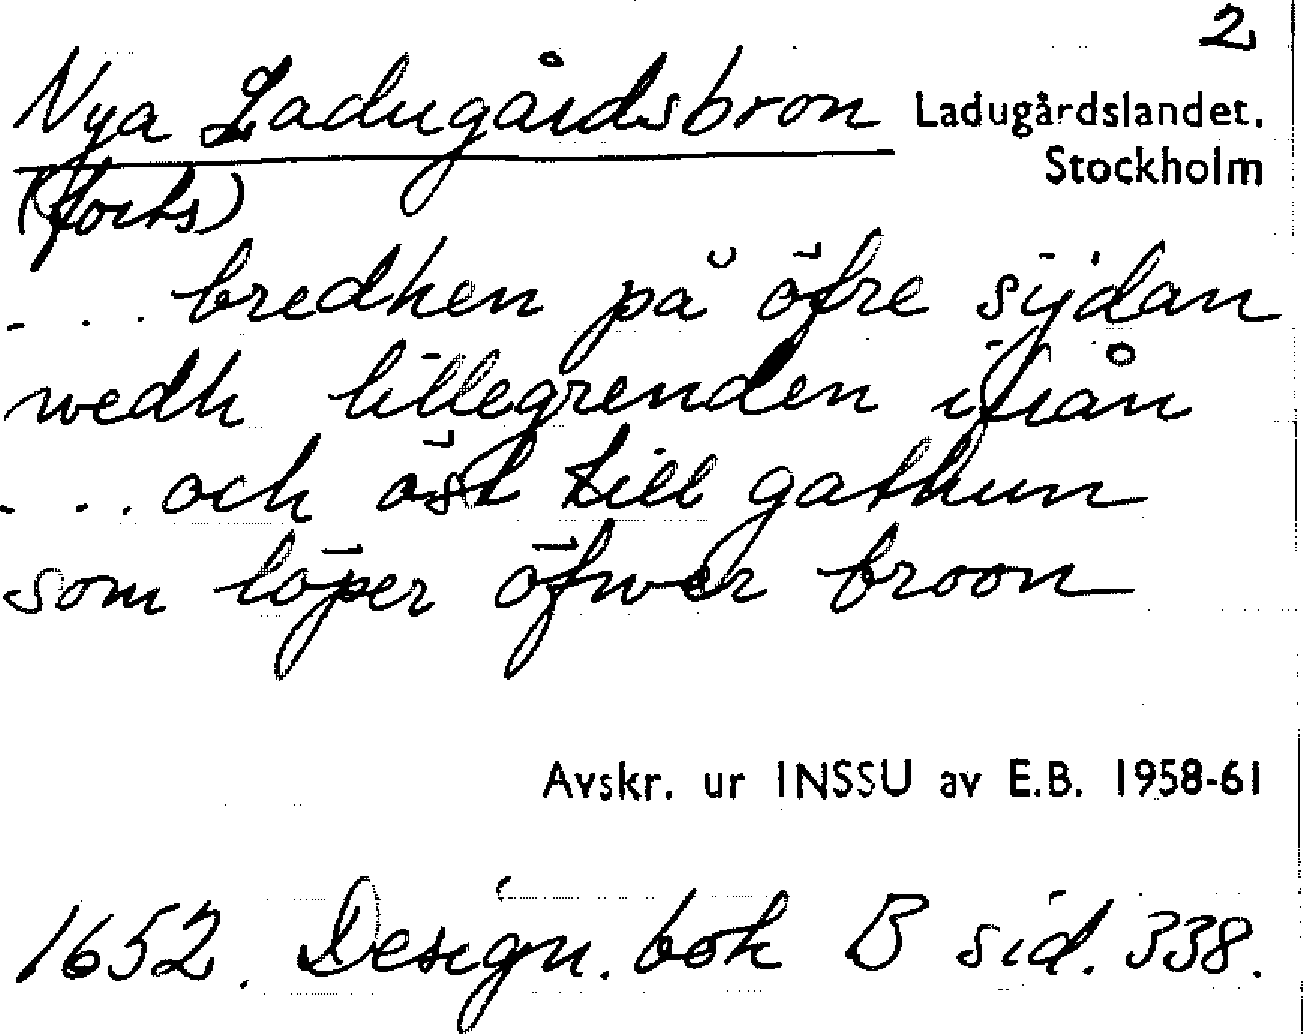 2
Nya Ladugårdsbron Ladugårdslandet.
(forts) Stockholm
... bredhen på öfre sijdan
wedh lillegrenden ifrån
... och öst till gathun
som löper öfwer broon
Avskr. ur INSSU av E.B. 1958-61
1652. Design. bok B sid. 338.